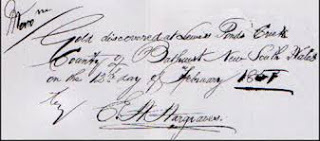 Gold discovered at Lewis Ponds Creek
County of Bathurst New South Wales
on the 12th day of February 1851
by
E. H. Hargraves.